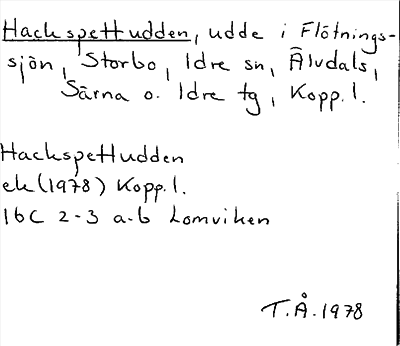 Hackspettudden, udde i Flötnings-
sjön, Storbo, Idre sn, Älvdals,
Särna o. Idre tg, Kopp. l.
Hackspettudden
ek (1978) Kopp. l.
16C 2-3 a-b Lomviken
T.Å. 1978